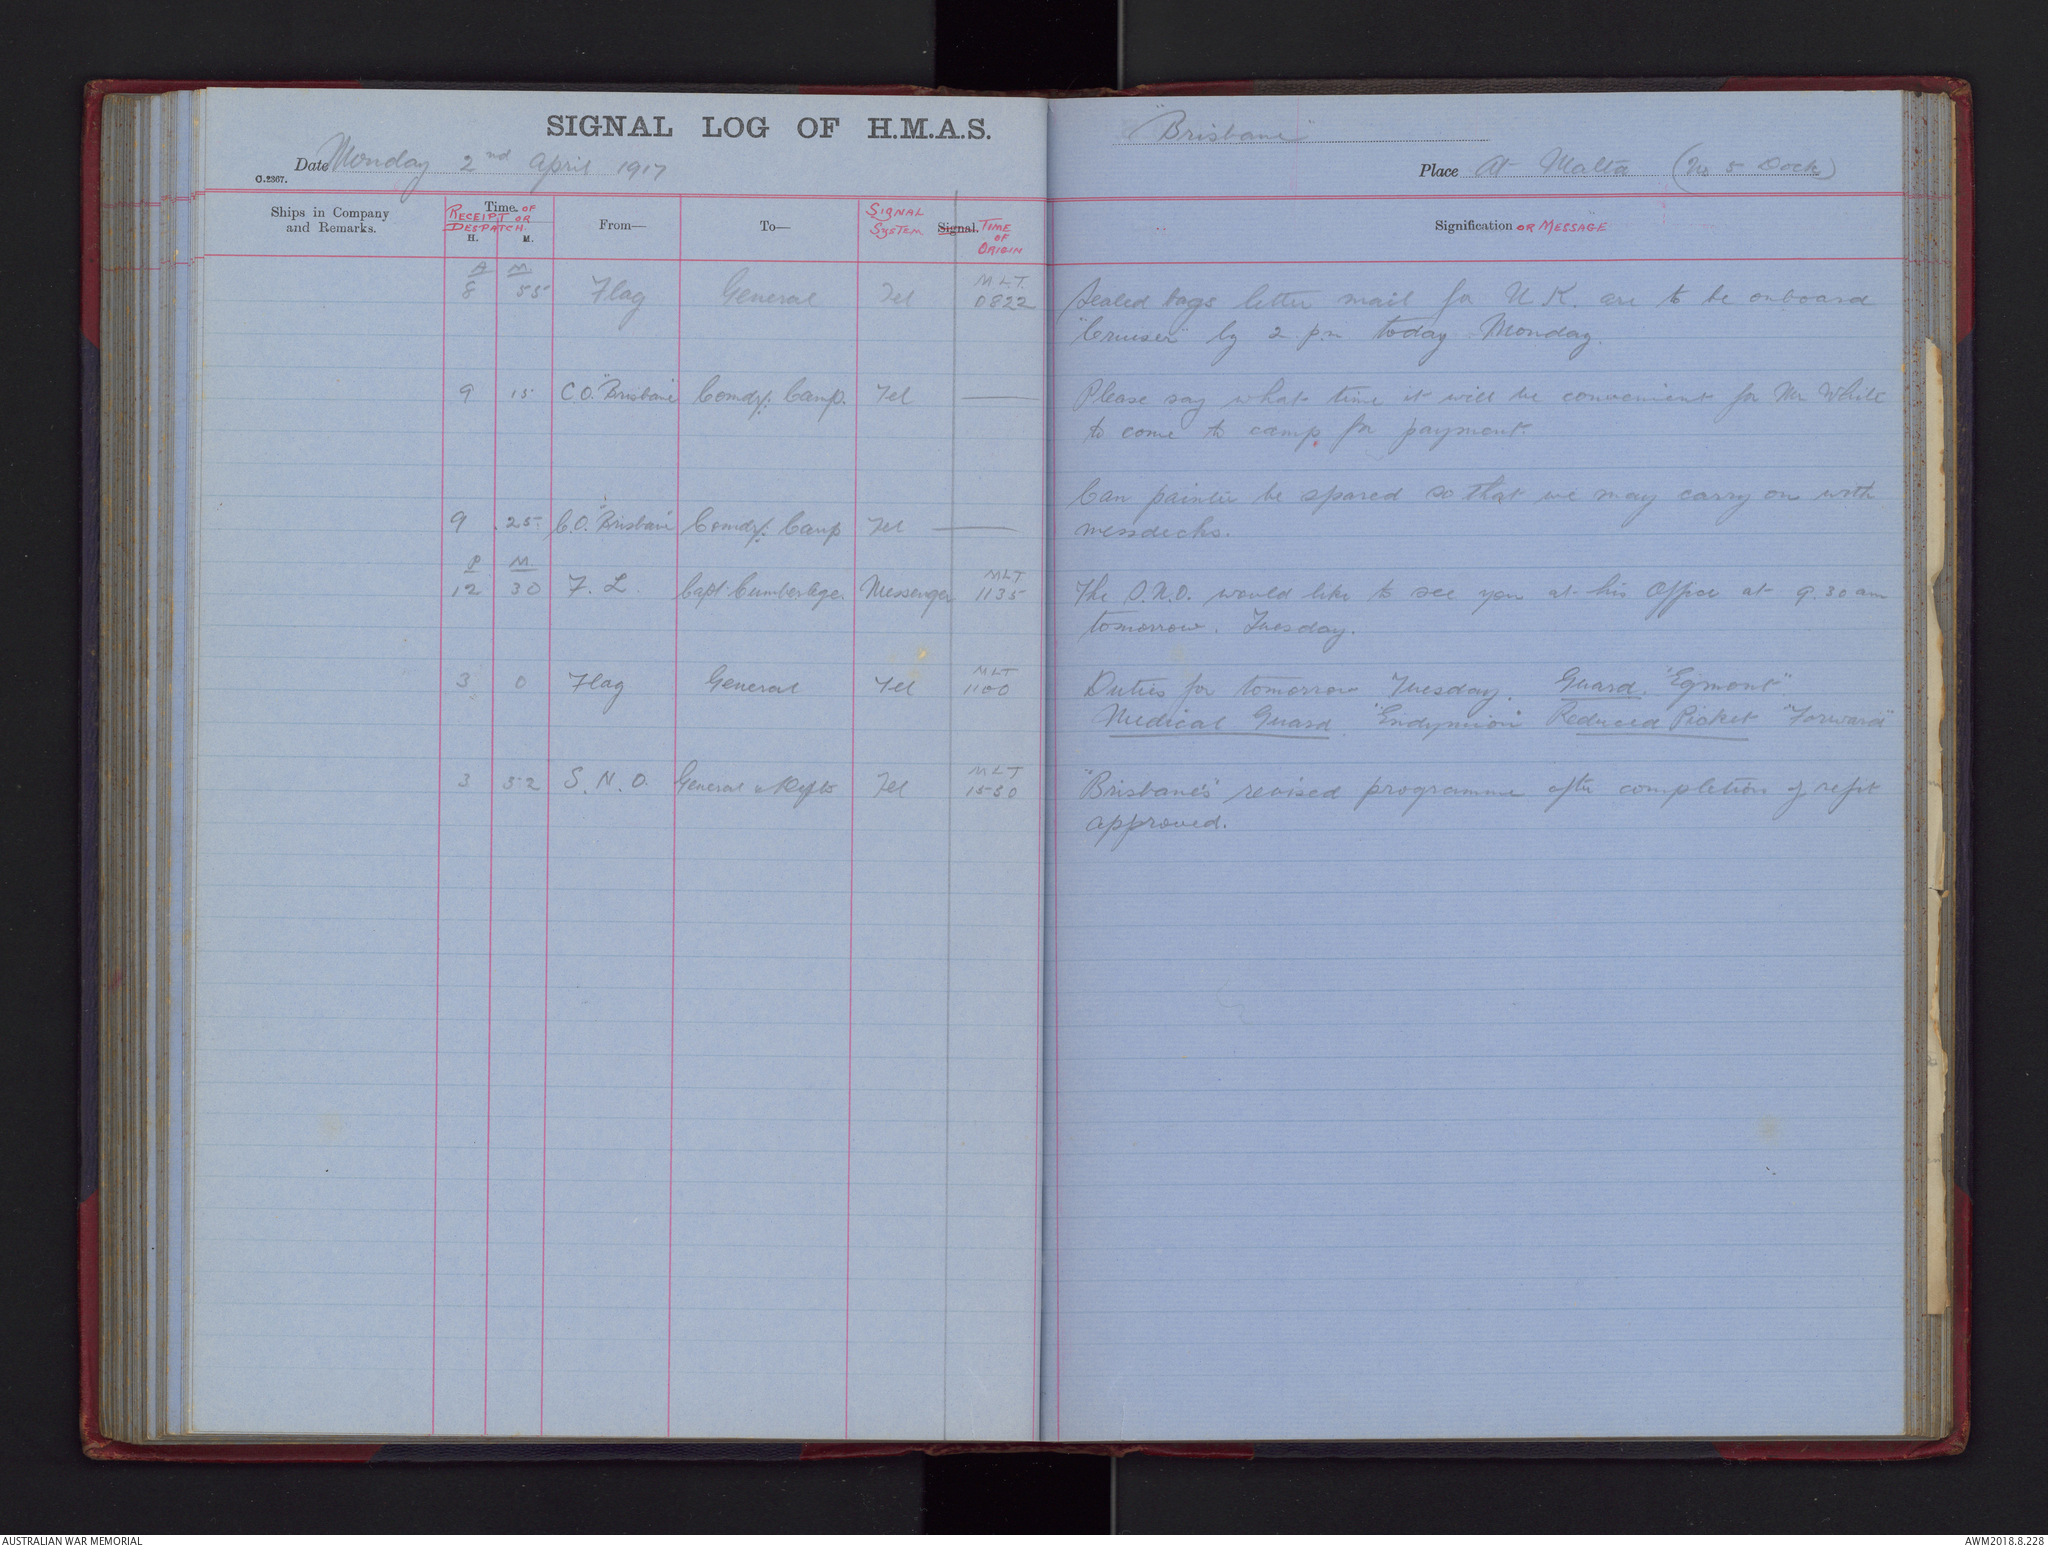 SIGNAL LOG OF H.M.A.S. "Brisbane"
Date Monday 2nd April 1917
Place At Malta (No 5 Dock)
O.2367.
Ships in Company and Remarks.
Time OF RECEIPT OR DESPATCH.
H. M.
From—
To—
SIGNAL SYSTEM
Signal. TIME OF ORIGIN
Signification OR MESSAGE
A M
8 55 Flag General Tel MLT 0822 Sealed bags letter mail for U.K. are to be onboard
"Cruiser" by 2 p.m today Monday.
9 15 C O. "Brisbane" Comdr. Camp. Tel — Please say what time it will be convenient for Mr White
to come to camp for payment.
Can painter be spared so that we may carry on with
9 .25. C.O. "Brisbane" Comdr. Camp Tel — messdecks.
P M
12 30 F. L. Capt. Cumberlege. Messenger MLT 1135 The S.N.O. would like to see you at his Office at 9.30 am
tomorrow. Tuesday.
3 0 Flag General Tel MLT 1100 Duties for tomorrow Tuesday. Guard. "Egmont".
Medical Guard "Endymion" Reduced Picket "Forward"
3 52 S. N. O. General Tel MLT 1550 "Brisbane's" revised programme after completion of refit
approved.
AUSTRALIAN WAR MEMORIAL
AWM2018.8.228